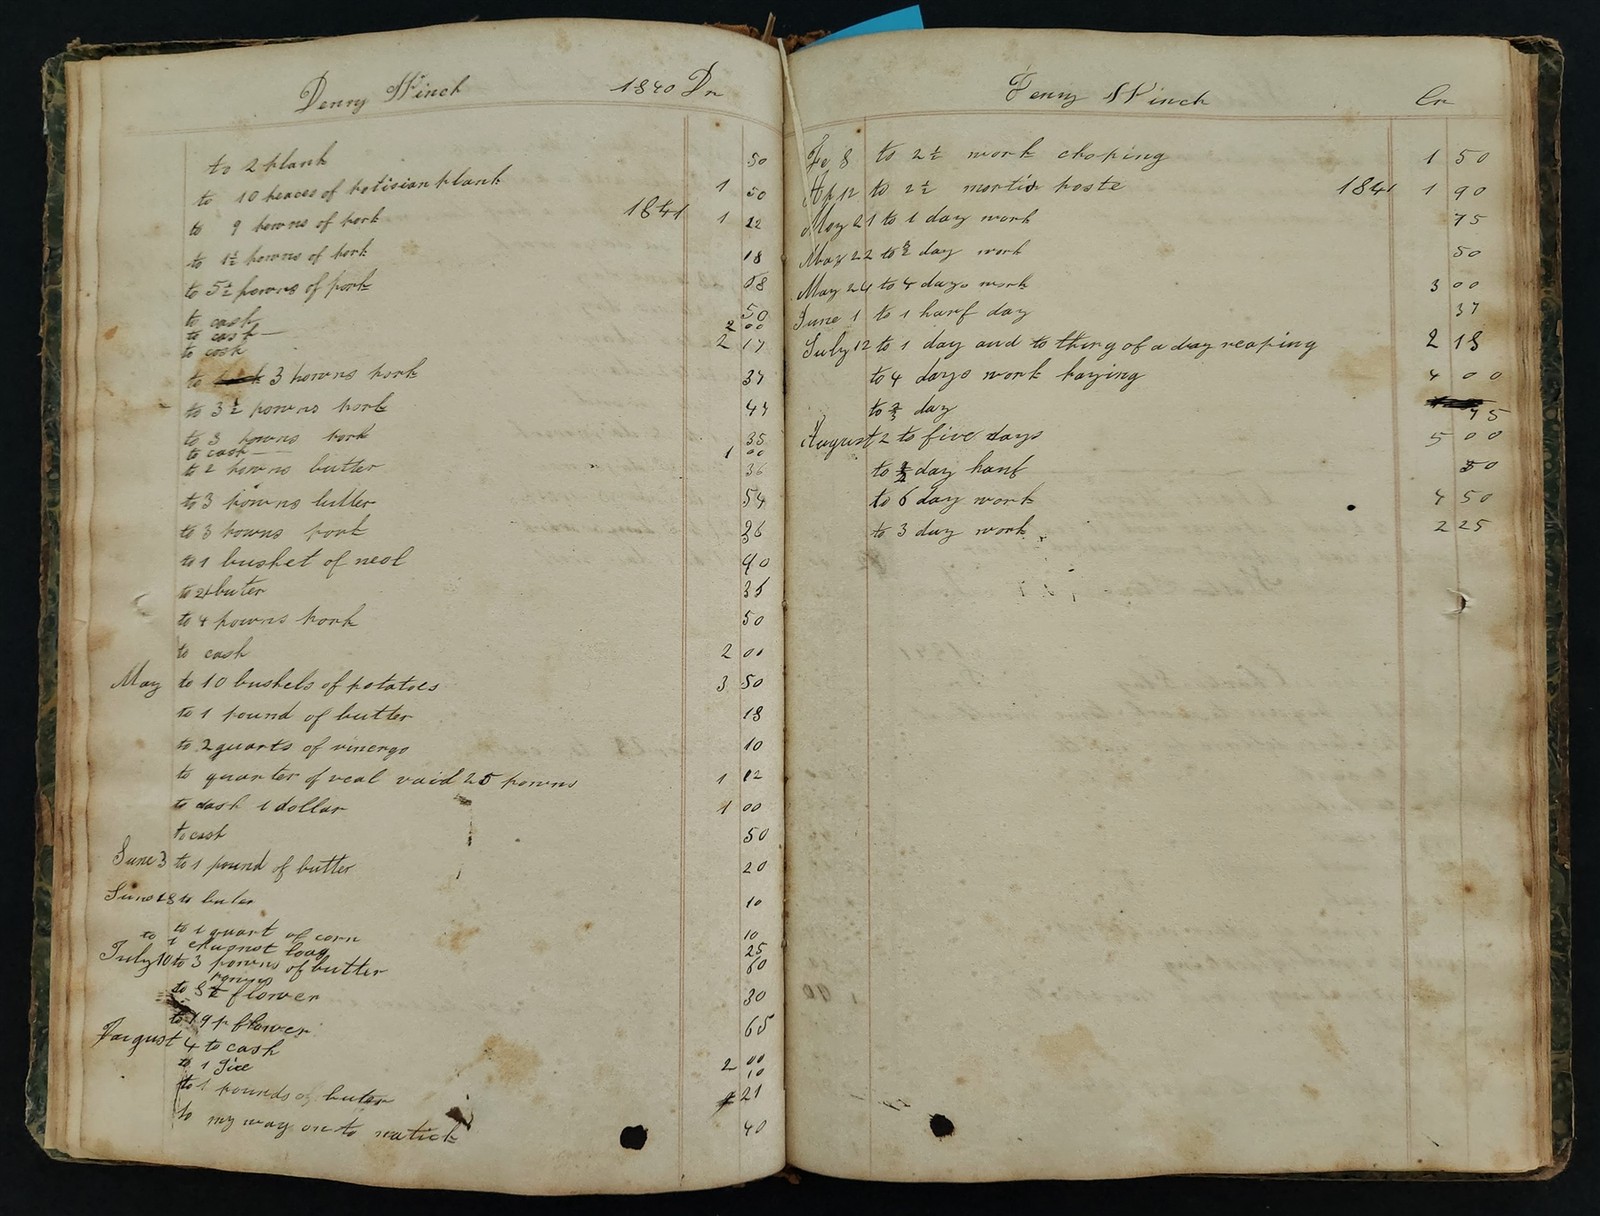 Denny Winch 1840 Dr
to 2 plank 50
to 10 peaces of potisian plank 1 50
to 9 powns of pork 1841 1 22
to 1½ powns of pork 18
to 5½ powns of pork 58
to cash 50
to cash 2 00
to cash 2 17
to 3 powns pork 37
to 3½ powns pork 44
to 3 powns pork 35
to cash 1 00
to 2 powns butter 36
to 3 powns butter 54
to 3 powns pork 36
to 1 bushet of 90
to 2 buter 36
to 4 powns pork 50
to cash 2 00
May to 10 bushels of potatoes 3 50
to 1 pound of butter 18
to 2 quarts of vinergo 10
to quarter of veal vaid 25 powns 1 12
to cash 1 dollar 1 00
to cash 50
June 3 to 1 pound of butter 20
June 18 to buter 10
to 1 quart of corn 10
to 1 25
July 10 to 3 powns of butter 60
powns
to 8½ flower 30
to 19 p flower 65
August 4 to cash 2 00
to 1 10
to 1 pounds of buter 21
to my way on to natick 40
Denny Winch Cr
Fe 8 to 2½ work choping 1 50
Ap 12 to 2½ mortis poste 1841 1 90
May 21 to 1 day work 75
May 22 to ⅔ day work 50
May 24 to 4 days work 3 00
June 1 to 1 harf day 37
July 12 to 1 day and to thirg of a day reaping 2 18
to 4 days work haying 4 00
to ⅔ day 75
August 2 to five days 5 00
to ½ day hanf 50
to 6 day work 4 50
to 3 day work 2 25